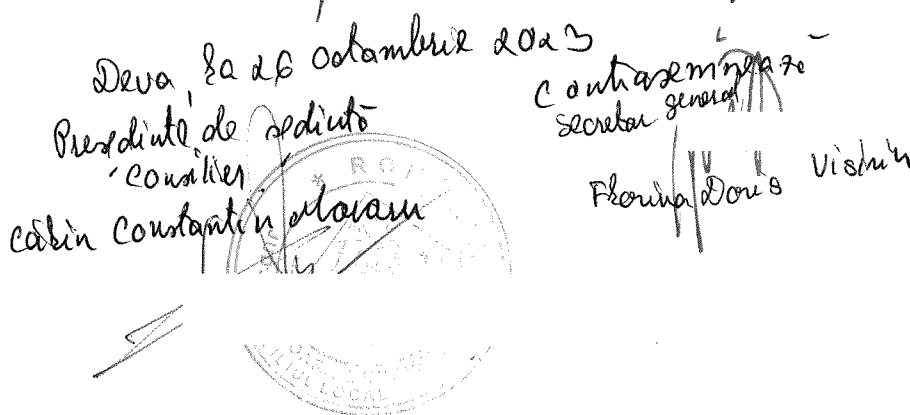 Deva, la 26 octombrie 2023
Președinte de ședință
consilier
Călin Constantin Marian
Contrasemnează
secretar general
Florina Doris Visirin
ROM
CONSILIUL LOCAL